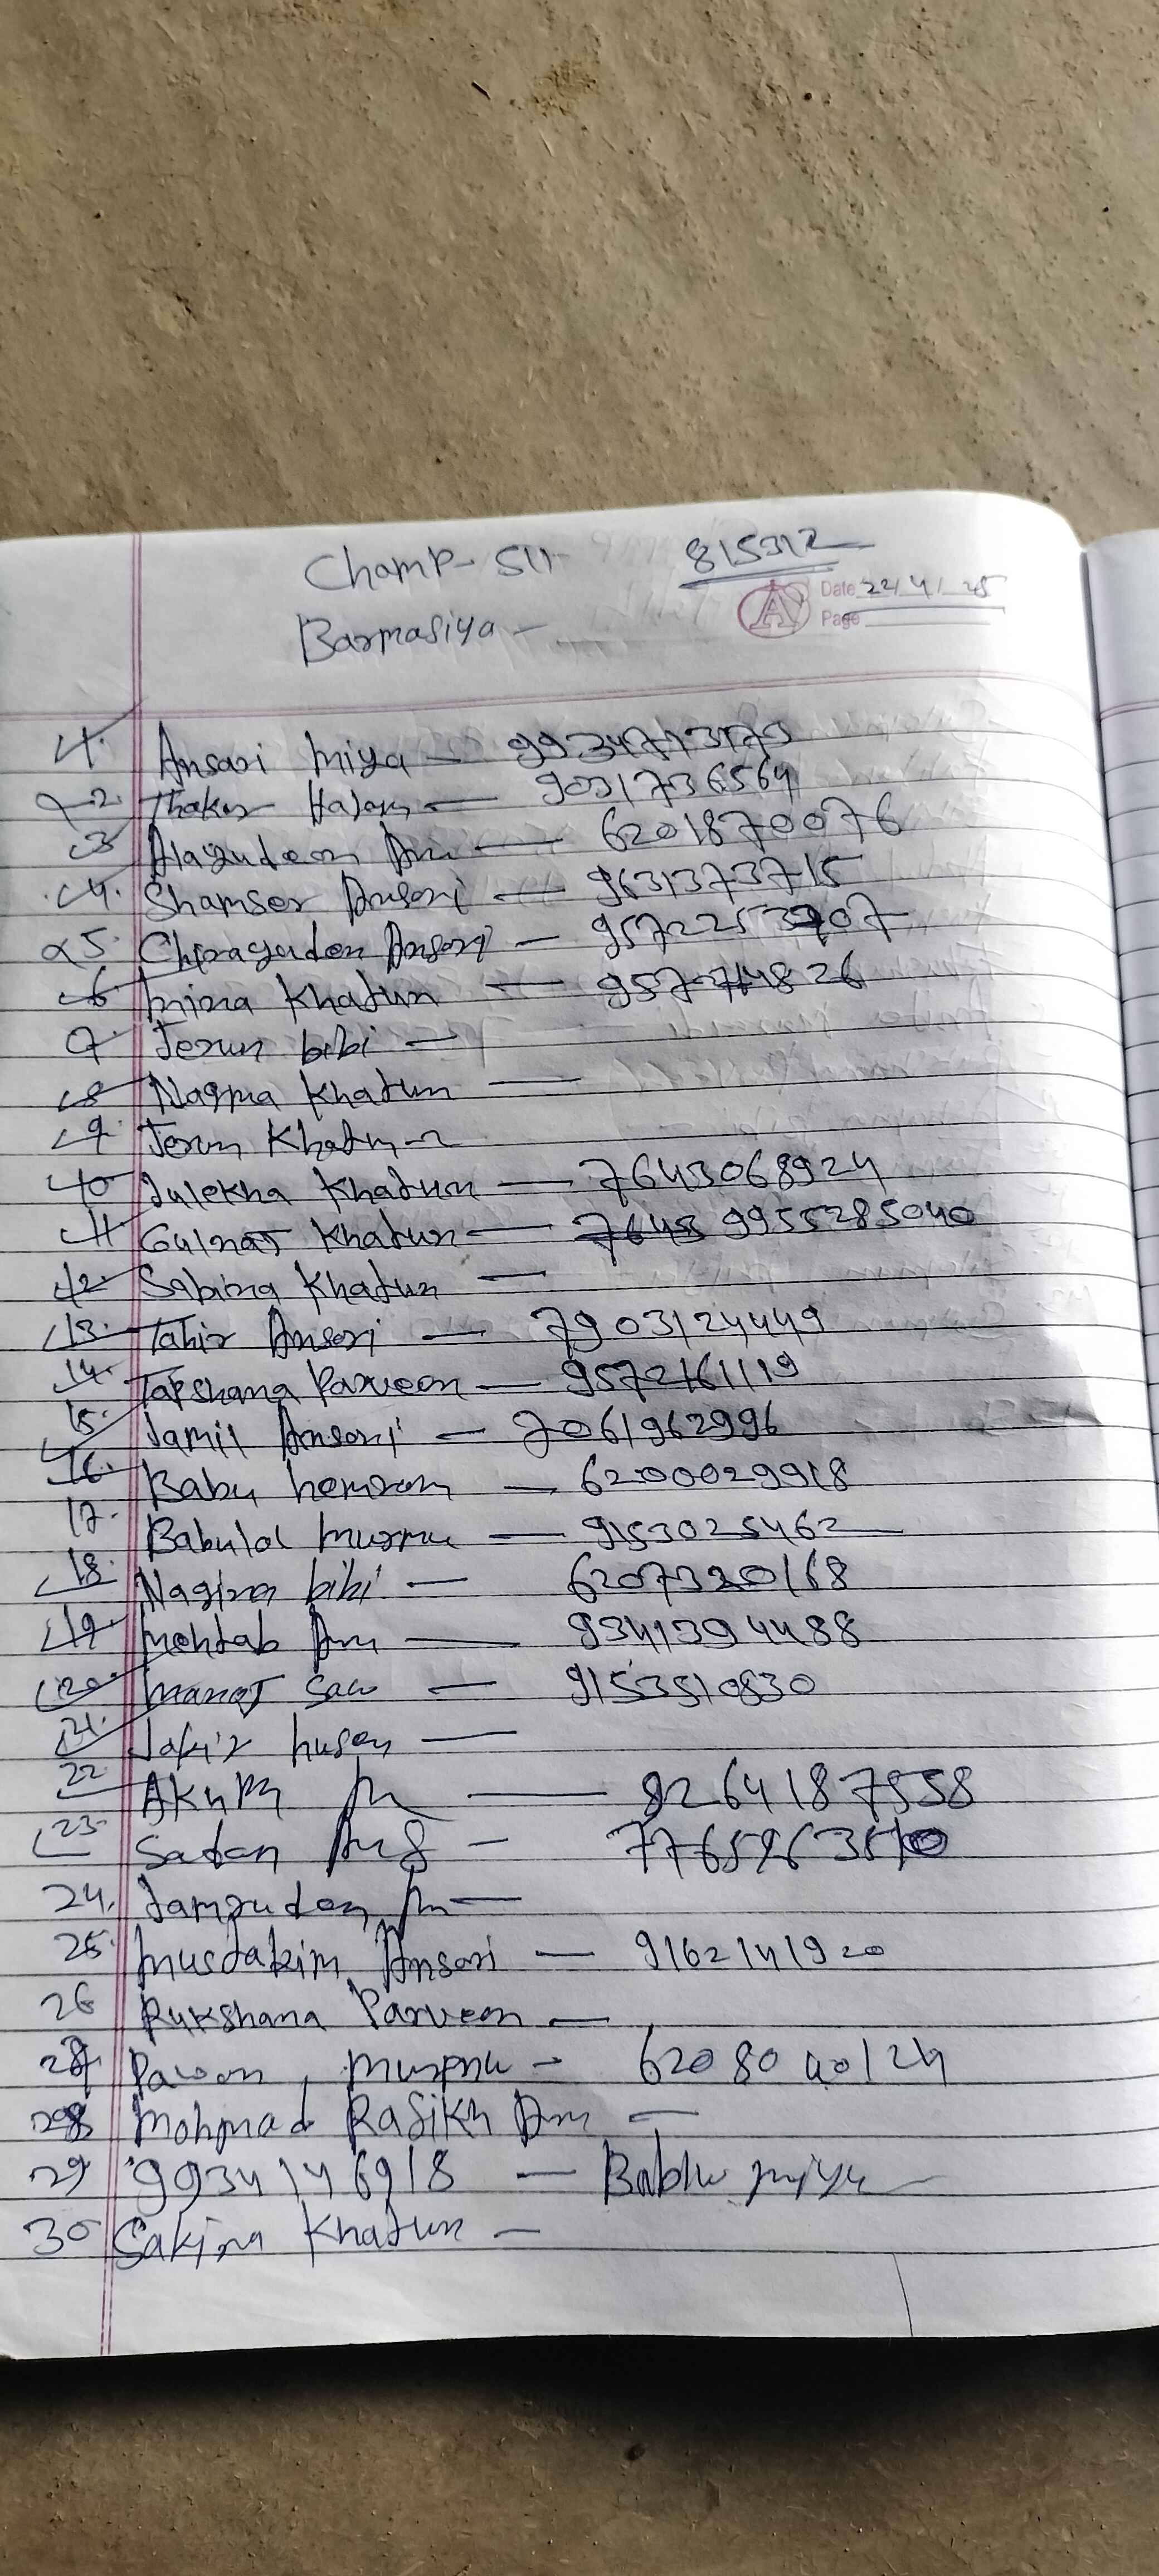 Champ- 511- 815312
Date 22/4/25
Barmasiya -
Page
1. Ansari Miya - 9934713173
2. Thakur - 9031736564
3. Alayudeen An. - 6201870076
4. Shamser Ansari - 9631373715
5. Chirayuden Ansari - 9572253907
6. mina Khatun - 957274826
7 Jerun bibi -
8 Nagma Khatun -
9. Jerun Khatun
10 Julekha Khatun - 7643068924
11 Gulnaj Khatun - 7648 9955285040
12. Sabina Khatun -
13. Tahir Ansari - 7903124449
14. Tarshana Parveen - 9572161119
15. Jamil Ansari - 7061962996
16. Babu hemram - 6200029918
17. Babulal murmu - 9153025462
18. Nagina bibi - 6207320168
19. mehtab An - 9341394488
20. manoj saw - 9153510830
21. Jakir husen -
22. - 8264187558
23. Sadan -
24. Jamrudan An -
25. mustakim Ansari - 9162141920
26 Rukshana Parveen -
27 Pawan murmu - 6208040124
28 Mohmad Rasikh An -
29 9934146918 - Bablu miya
30 Sakina Khatun -